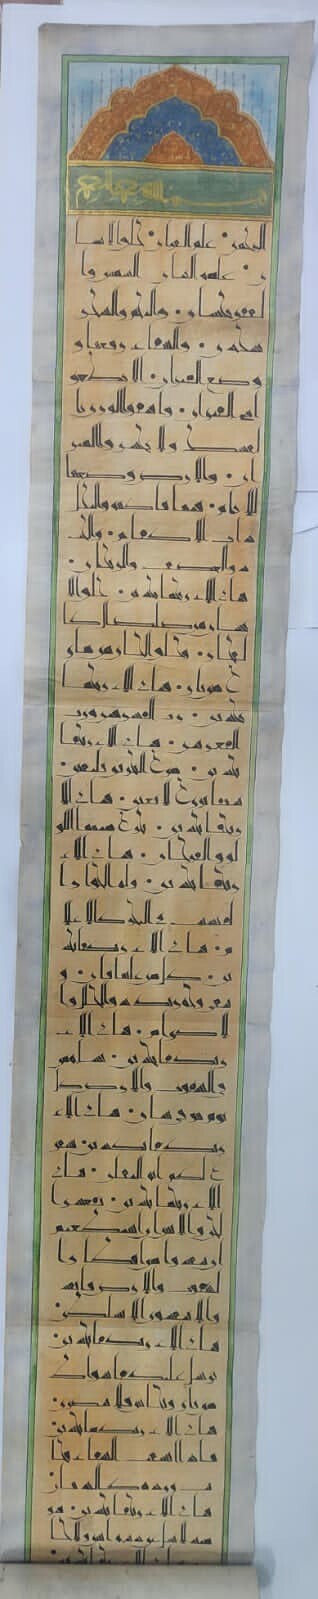 الرحمن علم القران خلق الانسا
ن علمه البيان الشمس وا
لقمر بحسبان والنجم والشجر
يسجدان والسماء رفعها و
وضع الميزان الا تطغوا
في الميزان واقيموا الوزن با
لقسط ولا تخسروا الميز
ان والارض وضعها
للانام فيها فاكهة والنخل
ذات الاكمام والحب
ذو العصف والريحان
فباي الاء ربكما تكذبن خلق الا
نسان من صلصال كا
لفخار وخلق الجان من مار
ج من نار فباي الاء ربكما
تكذبن رب المشرقين ورب
المغربين فباي الاء ربكما
تكذبن مرج البحرين يلتقين
بينهما برزخ لا يبغين فباي الاء
ربكما تكذبن يخرج منهما اللو
لو والمرجان فباي الاء
ربكما تكذبن وله الجوار ا
لمنشات في البحر كالاعلا
م فباي الاء ربكما تكذ
بن كل من عليها فان و
يبقى وجه ربك ذو الجلال وا
لاكرام فباي الاء
ربكما تكذبن يسله من
في السموت والارض كل
يوم هو في شان فباي الاء
ربكما تكذبن سنفر
غ لكم ايه الثقلان فباي
الاء ربكما تكذبن يمعشر ا
لجن والانس ان استطعتم
ان تنفذوا من اقطار ا
لسموت والارض فانفذوا
لا تنفذون الا بسلطن
فباي الاء ربكما تكذبن
يرسل عليكما شواظ
من نار ونحاس فلا تنتصرن
فباي الاء ربكما تكذبن
فاذا انشقت السماء فكا
نت وردة كالدهان
فباي الاء ربكما تكذبن فيو
مئذ لا يسل عن ذنبه انس ولا جا